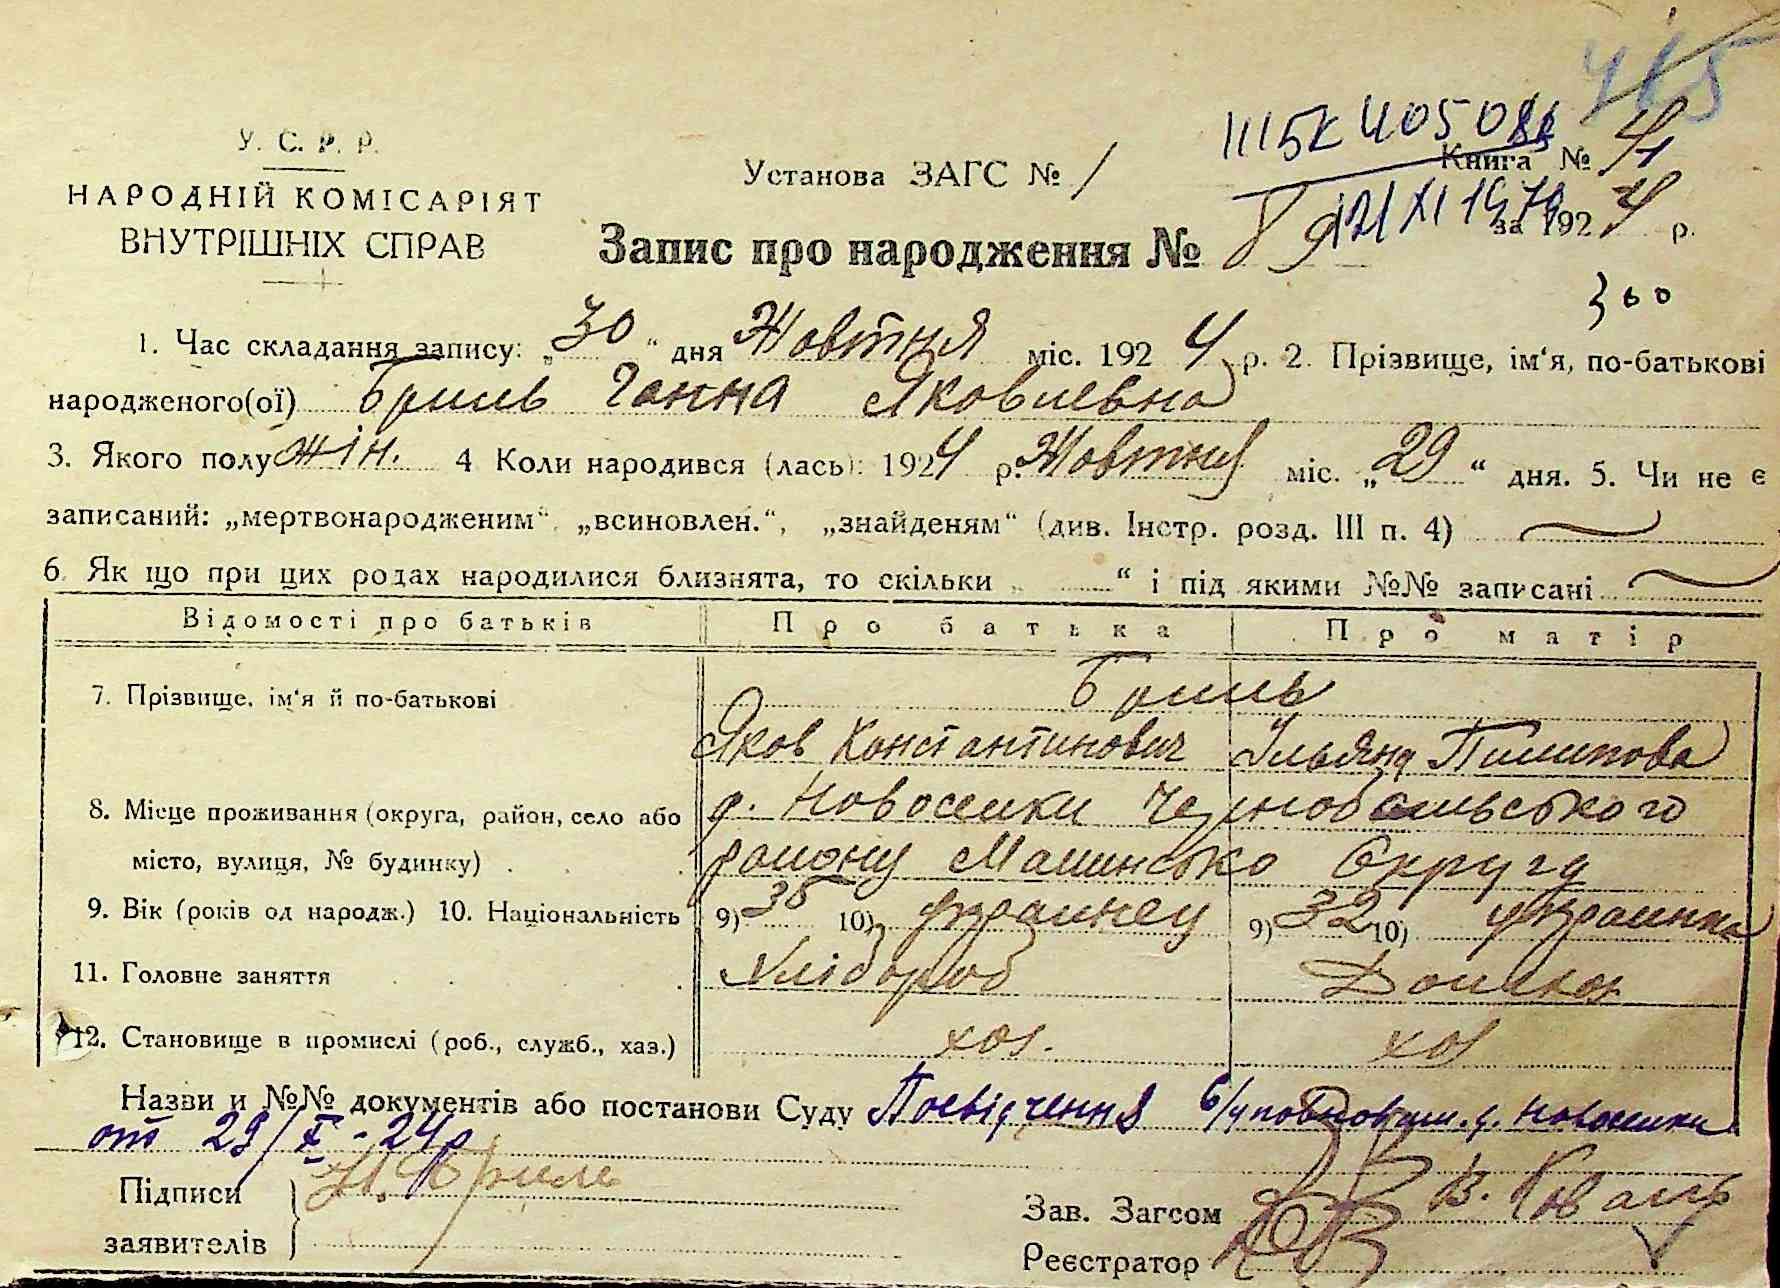 415
У. С. Р. Р.
НАРОДНІЙ КОМІСАРІЯТ
ВНУТРІШНІХ СПРАВ
Установа ЗАГС № 1
ІІІБК 405088
Книга № 4/1
21/XI 1974
за 1924 р.
Запис про народження №
300
1. Час складання запису: „30“ дня Жовтня міс. 1924 р. 2. Прізвище, ім‘я, по-батькові
народженого(ої) Бриль Ганна Яковлевна
3. Якого полу жін. 4 Коли народився (лась): 1924 р. Жовтня міс. „29“ дня. 5. Чи не є
записаний: „мертвонародженим“, „всиновлен.“, „знайденям“ (див. Інстр. розд. III п. 4)
6. Як що при цих родах народилися близнята, то скільки “ і під якими №№ записані
Відомості про батьків Про батька Про матір
7. Прізвище, ім‘я й по-батькові Бриль
Яков Константинович Ульяна Пилипова
8. Місце проживання (округа, район, село або с. Новоселки Чернобильського
місто, вулиця, № будинку) району Малинсько Округу
9. Вік (років од народж.) 10. Національність 9) 35 10) украинец 9) 32 10) украинка
11. Головне заняття Хлібороб Домхоз
12. Становище в промислі (роб., служб., хаз.) хоз. хоз
Назви и №№ документів або постанови Суду Посвідчення с. Новоселки
от 29/X - 24 р
Підписи Бриль
заявителів
Зав. Загсом В. Коваль
Реєстратор